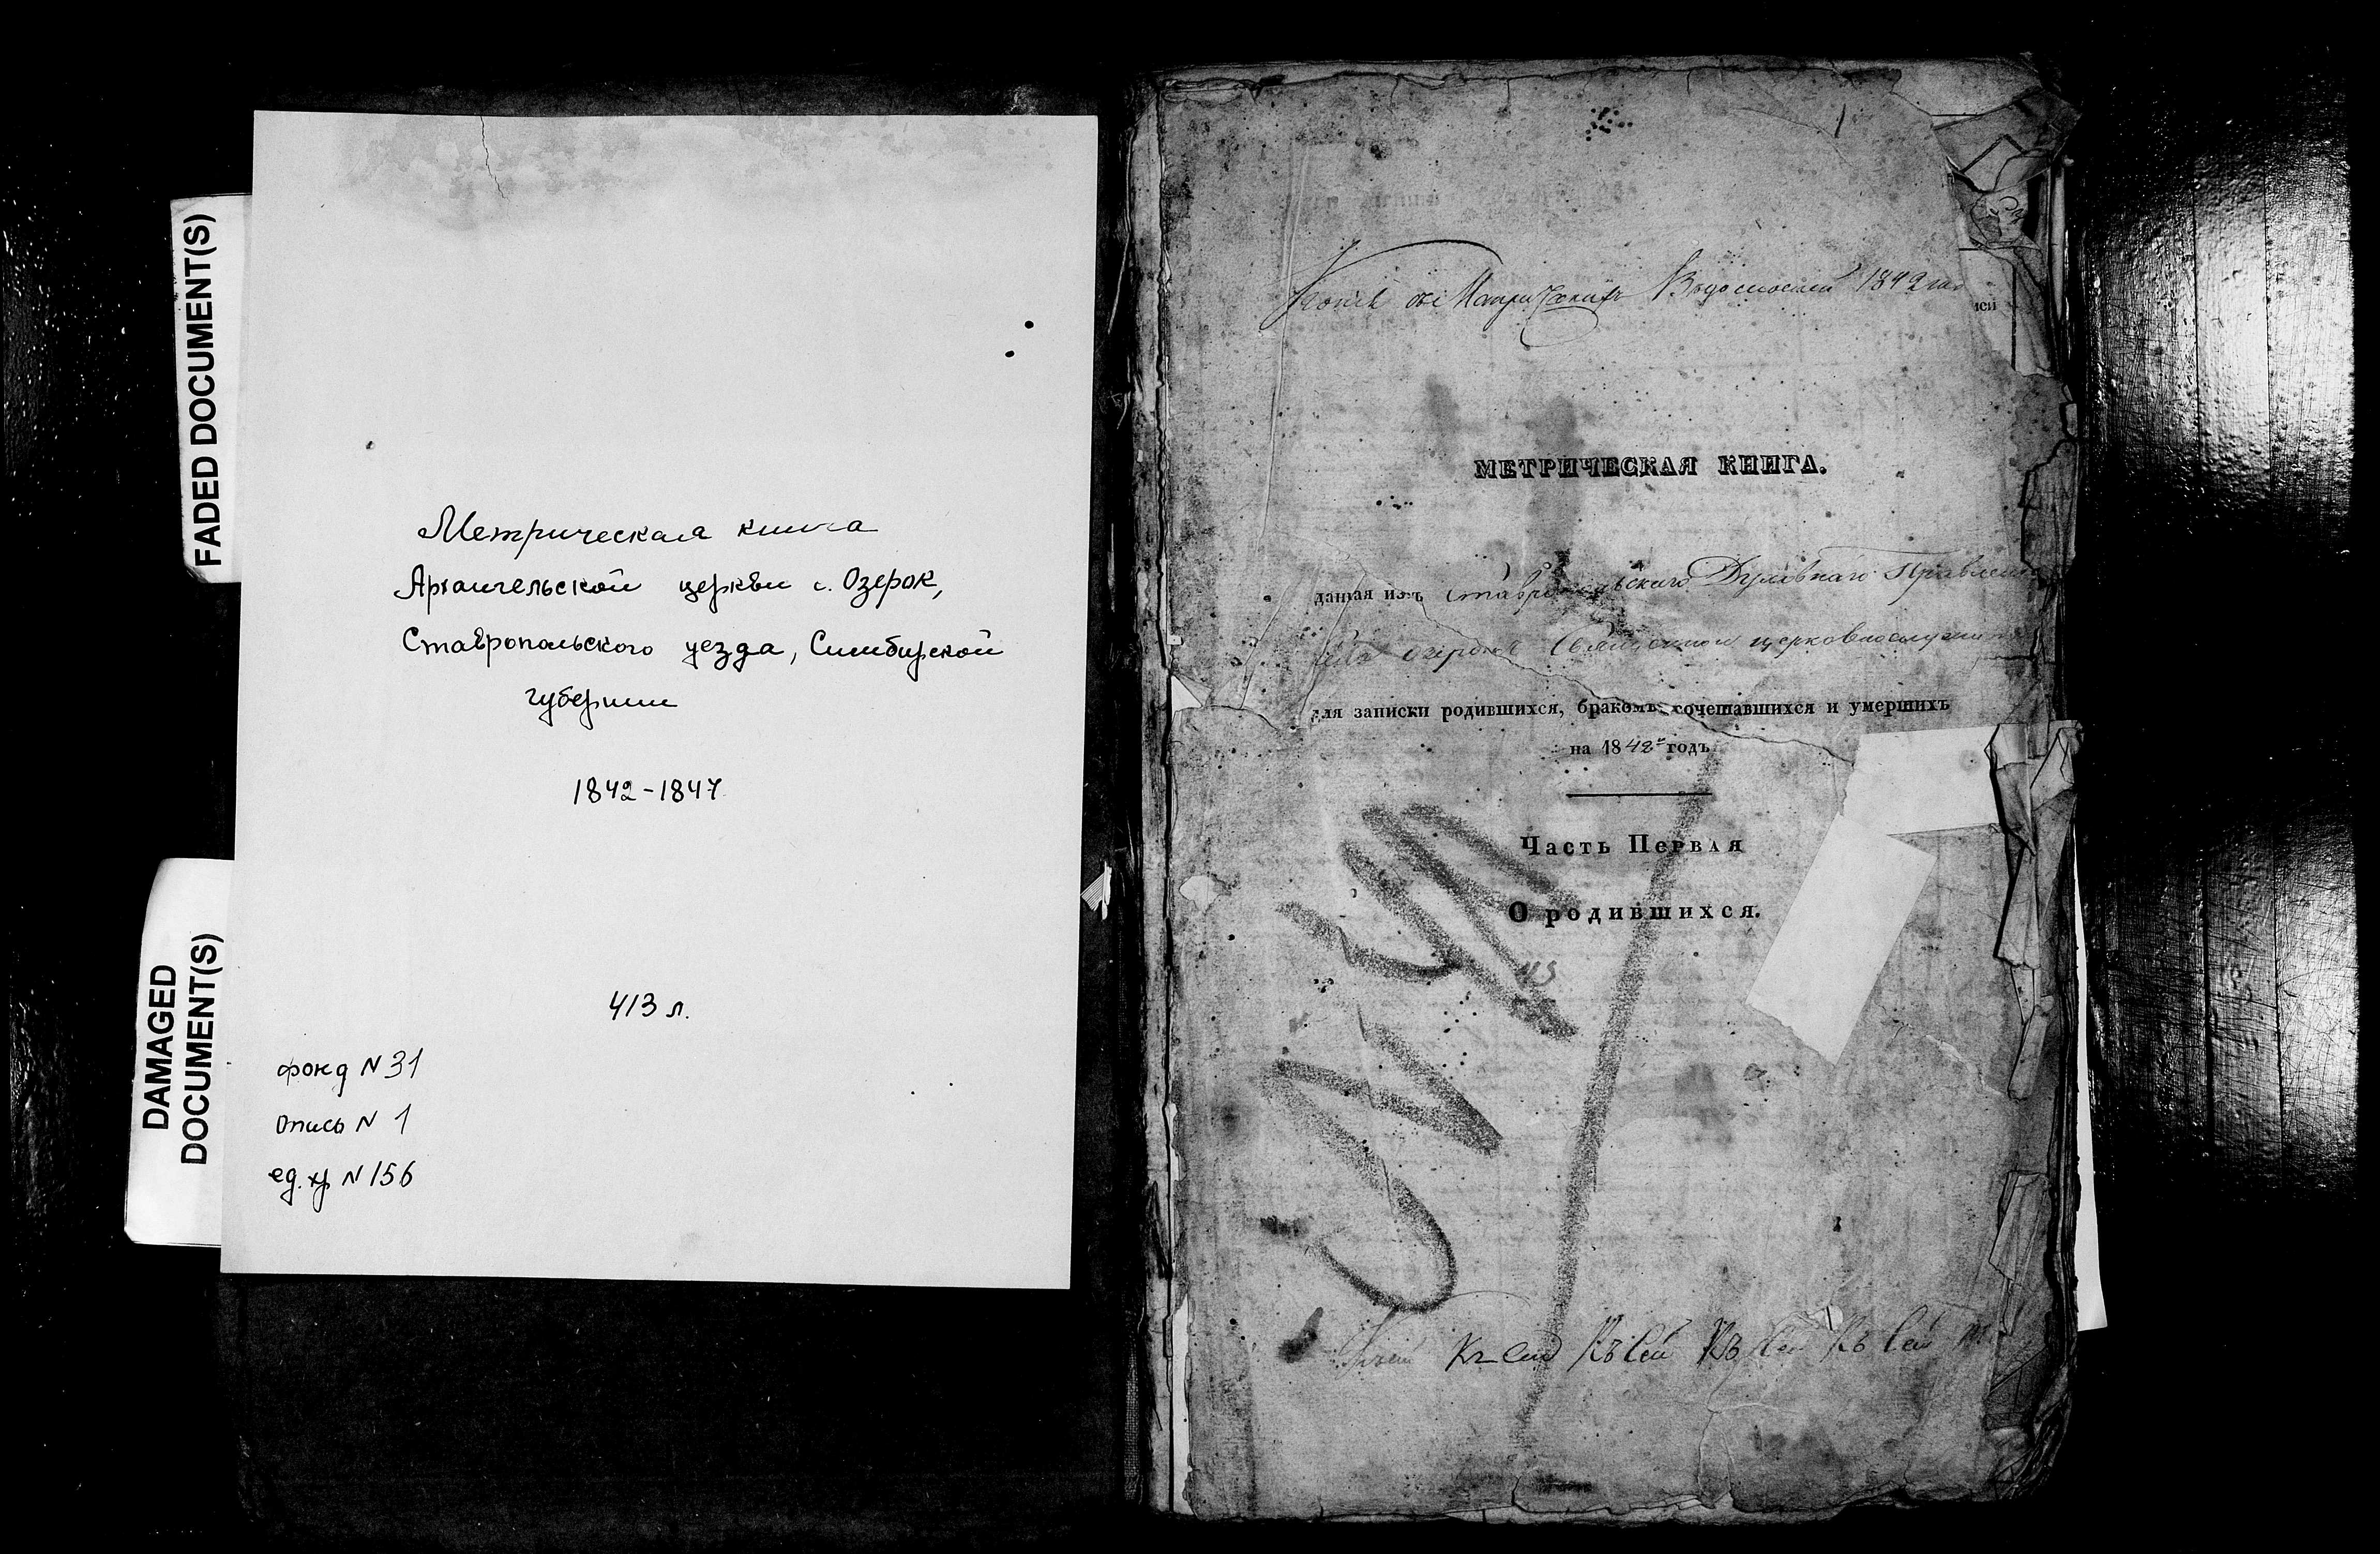 FADED DOCUMENT(S)
DAMAGED
DOCUMENT(S)
Метрическая книга
Архангельской церкви с. Озерок,
Ставропольского уезда, Симбирской
губернии
1842-1847
413 л.
фонд N 31
опись N 1
ед. хр N 156
Копія съ Метрическихъ Вѣдомостей 1842 год
ей
МЕТРИЧЕСКАЯ КНИГА.
данная изъ Ставропольскаго Духовнаго Правленія
Села Озерокъ Священно церковнослужит
для записки родившихся, бракомъ сочетавшихся и умершихъ
на 1842й годъ
Часть Первая
О родившихся.
Къ Сей Къ Сей Къ Сей Къ Сей